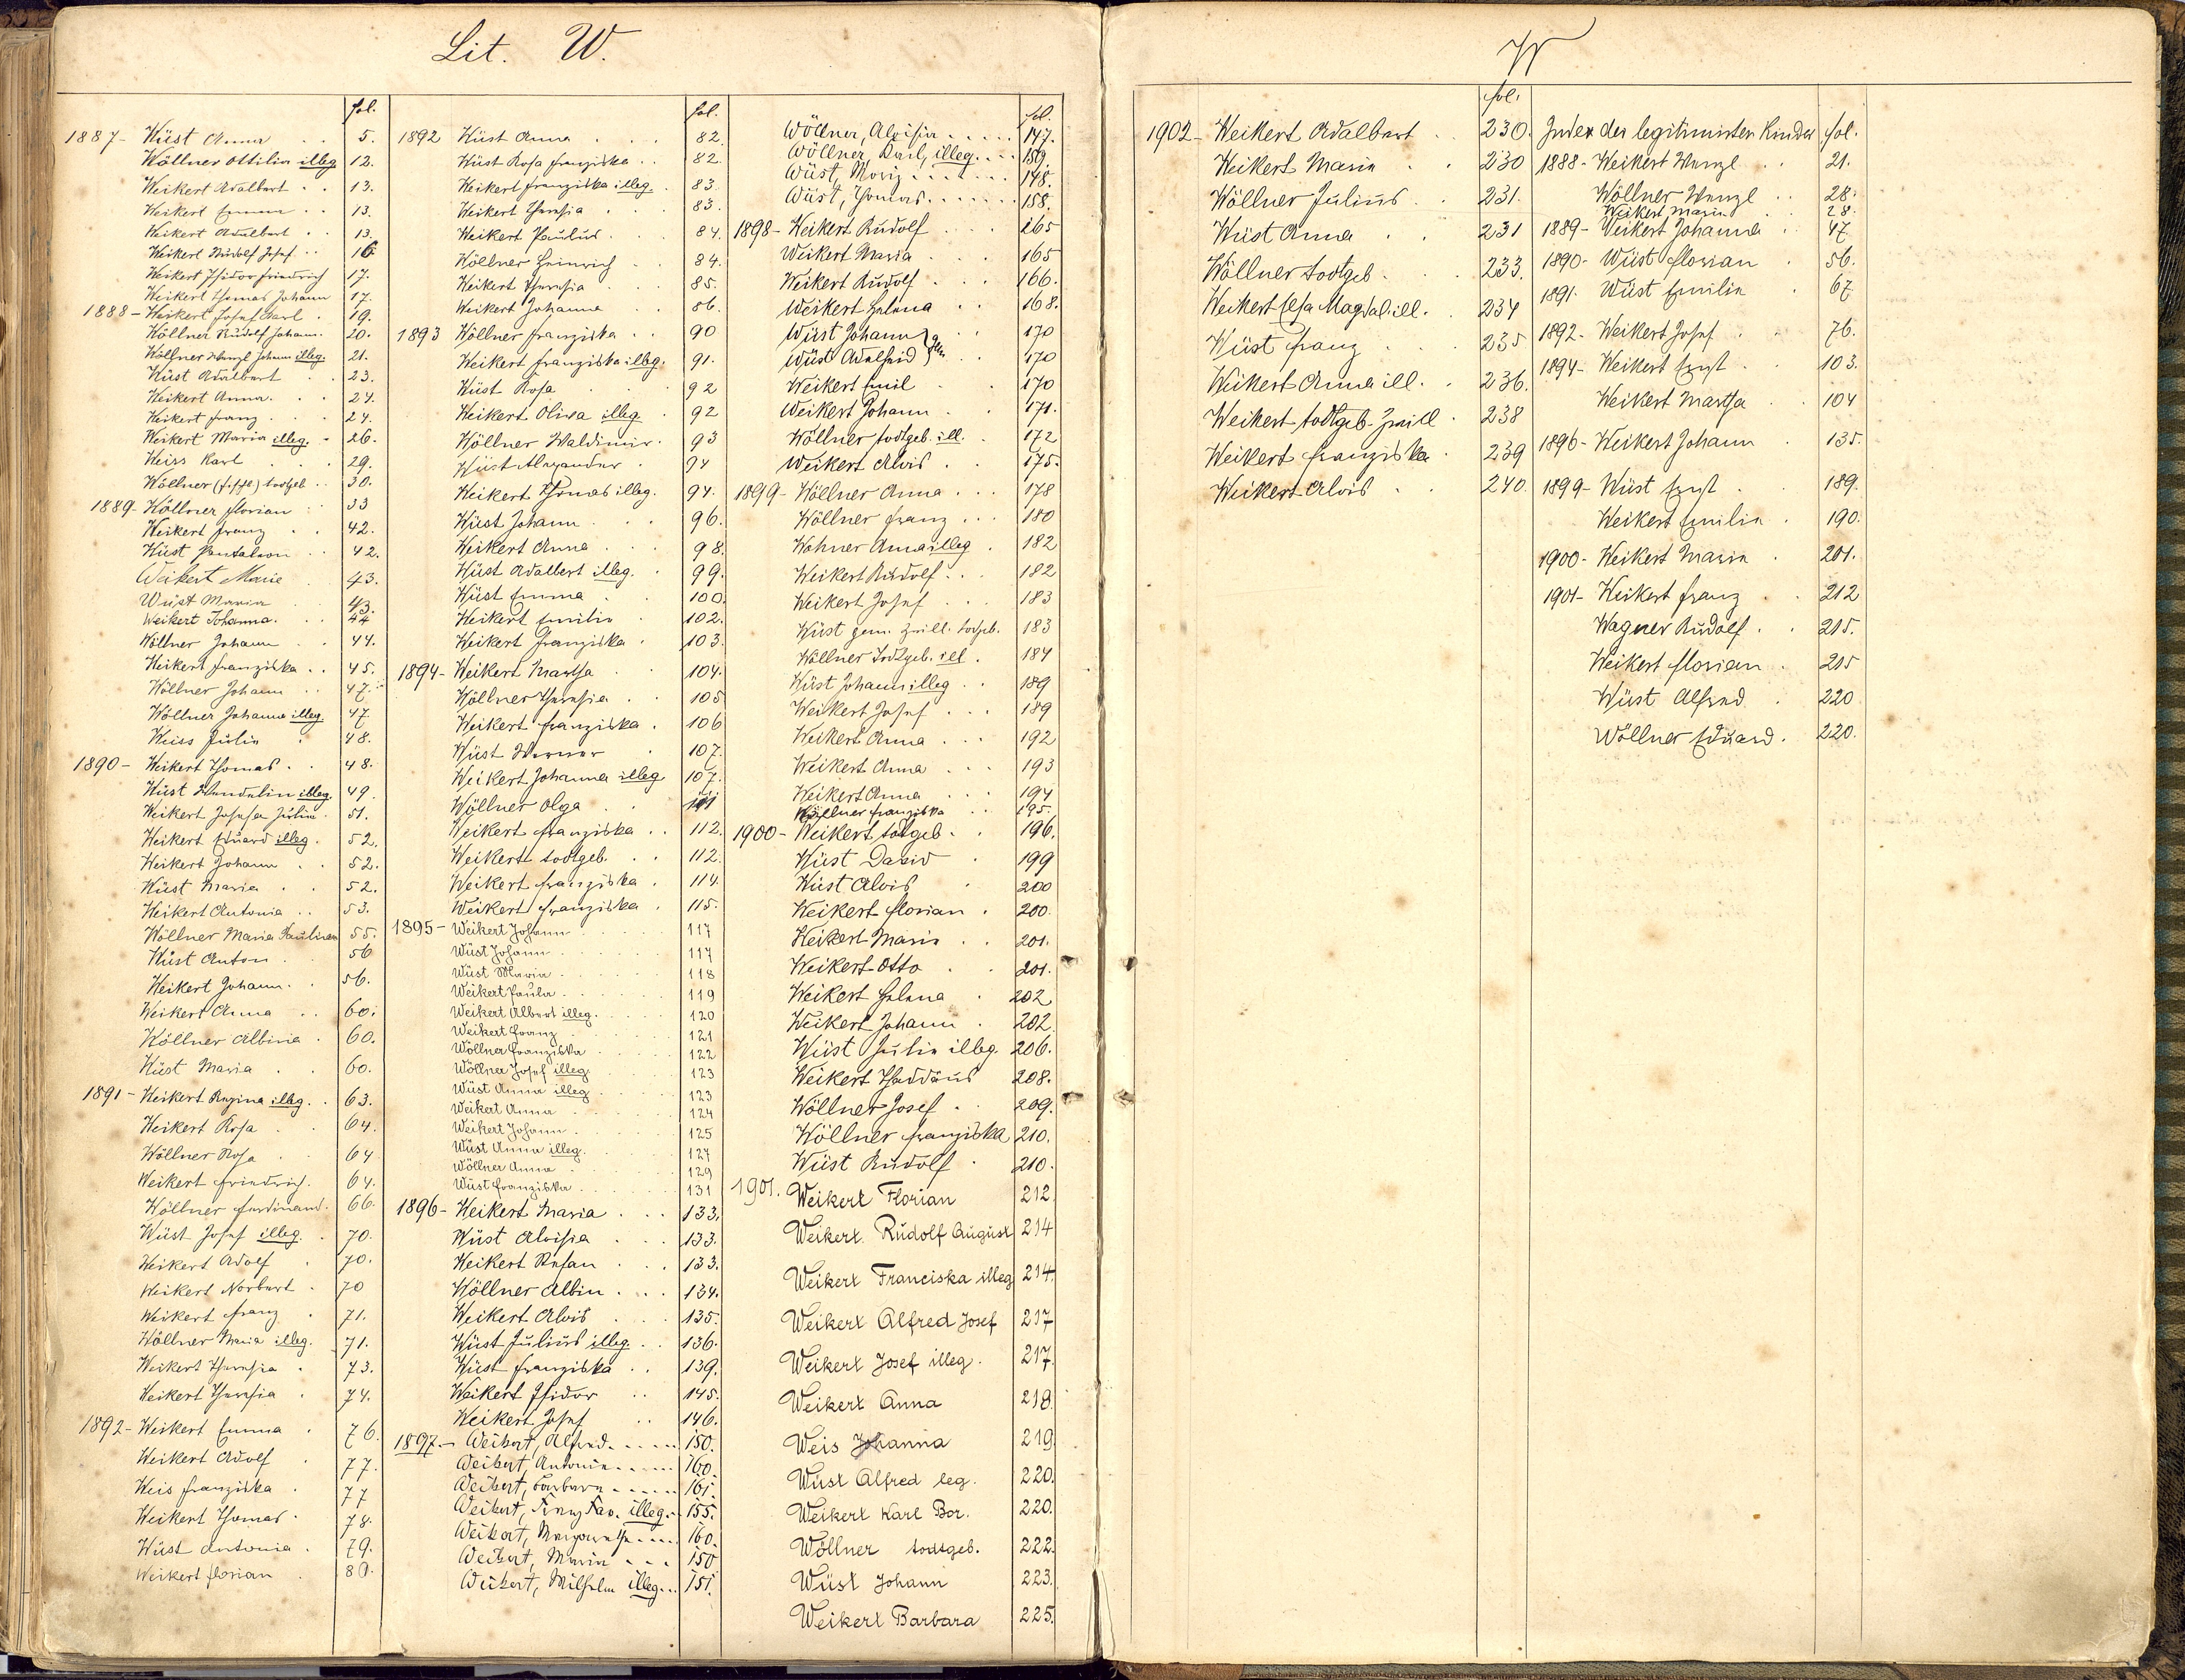 Lit. W.
fol.
1887- Wüst Anna . . 5.
Wöllner Ottilia illeg. 12.
Weikert Adalbert . . 13.
Weikert Emma . . 13.
Weikert Adalbert . . 13.
Weikert Rudolf Josef . . 16
Weikert Isidor Friedrich 17.
Weikert Thomas Johann 17.
1888- Weikert Josef Karl . 19.
Wöllner Rudolf Johann. 20.
Wöllner Wenzl Johann illeg. 21.
Wüst Adalbert . . 23.
Weikert Anna . . 24.
Weikert Franz . . 24.
Weikert Maria illeg. - 26.
Weiss Karl . . . 29.
Wöllner todtgeb . . 30.
1889- Wöllner Florian . 33
Weikert Franz . . 42.
Wüst Pantaleon . . 42.
Weikert Marie . 43.
Wüst Maria . . 43.
Weikert Johanna. . . 44
Wöllner Johann . . 44.
Weikert Franziska . . 45.
Wöllner Johann . . 47.
Wöllner Johanna illeg. 47
Weiss Julia . 48.
1890- Weikert Thomas . . 48.
Wüst Wendelin illeg. 49.
Weikert Josefa Julia . 51.
Weikert Eduard illeg. 52.
Weikert Johann . . 52.
Wüst Maria . . 52.
Weikert Antonia . . 53.
Wöllner Maria Paulina 55.
Wüst Anton . 56
Weikert Johann . . 56.
Weikert Anna . . 60.
Wöllner Albina . 60.
Wüst Maria . . 60.
1891- Weikert Regina illeg. . 63.
Weikert Rosa . . 64.
Wöllner Rosa . . 64
Weikert Friedrich . 64.
Wöllner Ferdinand . 66.
Wüst Josef illeg. . 70.
Weikert Adolf . 70.
Weikert Norbert . 70
Weikert Franz . 71.
Wöllner Maria illeg. 71.
Weikert Theresia . 73.
Weikert Theresia . 74.
1892- Weikert Emma . 76.
Weikert Adolf . 77.
Weis Franziska . 77
Weikert Thomas . 78.
Wüst Antonia . 79.
Weikert Florian . 80.
fol.
1892 Wüst Anna . . . 82.
Wüst Rosa Franziska . . 82.
Weikert Franziska illeg. . 83.
Weikert Theresia . . 83.
Weikert Paulus . . 84.
Wöllner Heinrich . . 84.
Weikert Theresia . . . 85.
Weikert Johanna . . 86.
1893 Wöllner Franziska . . 90
Weikert Franziska illeg. 91.
Wüst Rosa . . . 92
Weikert Oliva illeg. . 92
Wöllner Waldimir . 93
Wüst Alexander . 94
Weikert Thomas illeg. 94.
Wüst Johann . . . 96.
Weikert Anna . . . 98.
Wüst Adalbert illeg. . 99.
Wüst Emma . . 100.
Weikert Emilia . . 102.
Weikert Franziska . 103.
1894- Weikert Martha . 104.
Wöllner Theresia . 105
Weikert Franziska . 106
Wüst Werner . 107.
Weikert Johanna illeg. 107.
Wöllner Olga . . 111
Weikert Franziska . . 112.
Weikert todtgeb. . . 112.
Weikert Franziska . 114.
Weikert Franziska . 115.
1895- Weikert Johann . . . . . 117
Wüst Johann . . . . . 117
Wüst Maria . . . . . 118
Weikert Paula . . . . . 119
Weikert Albert illeg. . . . . 120
Weikert Franz . . . . . 121
Wöllner Franziska . . . . 122
Wöllner Josef illeg. . . . 123
Wüst Anna illeg. . . . . 123
Weikert Anna . . . . . 124
Weikert Johann . . . . . 125
Wüst Anna illeg. . . . . 127
Wöllner Anna . . . . . 129
Wüst Franziska . . . . . 131
1896- Weikert Maria . . . 133.
Wüst Aloisia . . . 133.
Weikert Stefan . . . 133.
Wöllner Albin . . . 134.
Weikert Alois . . . 135.
Wüst Julius illeg. . . 136.
Wüst Franziska . . 139.
Weikert Isidor . . 145.
Weikert Josef . . 146.
1897.- Weikert, Alfred. . . . . 150.
Weikert, Antonia . . . . 160.
Weikert, Barbara . . . . . 161.
Weikert, Franz Xav. illeg. . 155.
Weikert, Margaretha . . . . 160.
Weikert, Maria . . . 150
Weikert, Wilhelm illeg. . . 151.
fol.
Wöllner, Aloisia . . . . . 147.
Wöllner, Karl, illeg. . . . 159.
Wüst, Moriz . . . . . . 148.
Wüst, Thomas . . . . . . 158.
1898- Weikert Rudolf . . . 165
Weikert Maria . . . 165
Weikert Rudolf . . . 166.
Weikert Helena . . . 168.
Wüst Johann . . 170
Wüst Adelheid . . 170
Weikert Emil . . 170
Weikert Johann . . 171.
Wöllner todtgeb. ill. . 172
Weikert Alois . . 175.
1899- Wöllner Anna . . . 178
Wöllner Franz . . . 180
Wohner Anna illeg . 182
Weikert Rudolf . . . 182
Weikert Josef . . . 183
Wüst gem. Zwill. todtgeb. 183
Wöllner Todtgeb. ill . 184
Wüst Johann illeg . . 189
Weikert Josef . . . 189
Weikert Anna . . . 192
Weikert Anna . . . 193
Weikert Anna . . . 194
Wöllner Franziska . . 195.
1900- Weikert todtgeb . . 196.
Wüst David . 199
Wüst Alois . 200
Weikert Florian . 200.
Weikert Maria . . 201.
Weikert Otto . . 201.
Weikert Helena . 202
Weikert Johann . 202.
Wüst Julia illeg. 206.
Weikert Thaddäus 208.
Wöllner Josef . . 209.
Wöllner Franziska 210.
Wüst Rudolf . 210.
1901. Weikert Florian 212.
Weikert Rudolf August 214
Weikert Franciska illeg 214.
Weikert Alfred Josef 217
Weikert Josef illeg. 217.
Weikert Anna 218
Weis Johanna 219
Wüst Alfred leg. 220.
Weikert Karl Bor. 220.
Wöllner todtgeb. 222.
Wüst Johann 223.
Weikert Barbara 225.
W
fol.
1902- Weikert Adalbert . . 230.
Weikert Maria . . 230
Wöllner Julius . . 231.
Wüst Anna . . 231
Wöllner todtgeb . . . 233.
Weikert Magdal. ill. . 234
Wüst Franz . . . 235
Weikert Anna ill. . 236.
Weikert todtgeb. Zwill . 238
Weikert Franziska . 239
Weikert Alois . . 240.
Index der legitimirten Kinder fol.
1888- Weikert Wenzl . . 21.
Wöllner Wenzl . . 28.
Weikert Maria . . 28.
1889- Weikert Johanna . 47
1890- Wüst Florian . 56.
1891. Wüst Emilia . 67
1892- Weikert Josef . . 76.
1894- Weikert Ernst . . 103.
Weikert Martha . . 104
1896- Weikert Johann . 135.
1899- Wüst Ernst . . 189.
Weikert Emilia . 190.
1900- Weikert Maria . 201.
1901- Weikert Franz . . 212
Wagner Rudolf . . 215.
Weikert Florian . 215
Wüst Alfred . 220
Wöllner Eduard . 220.